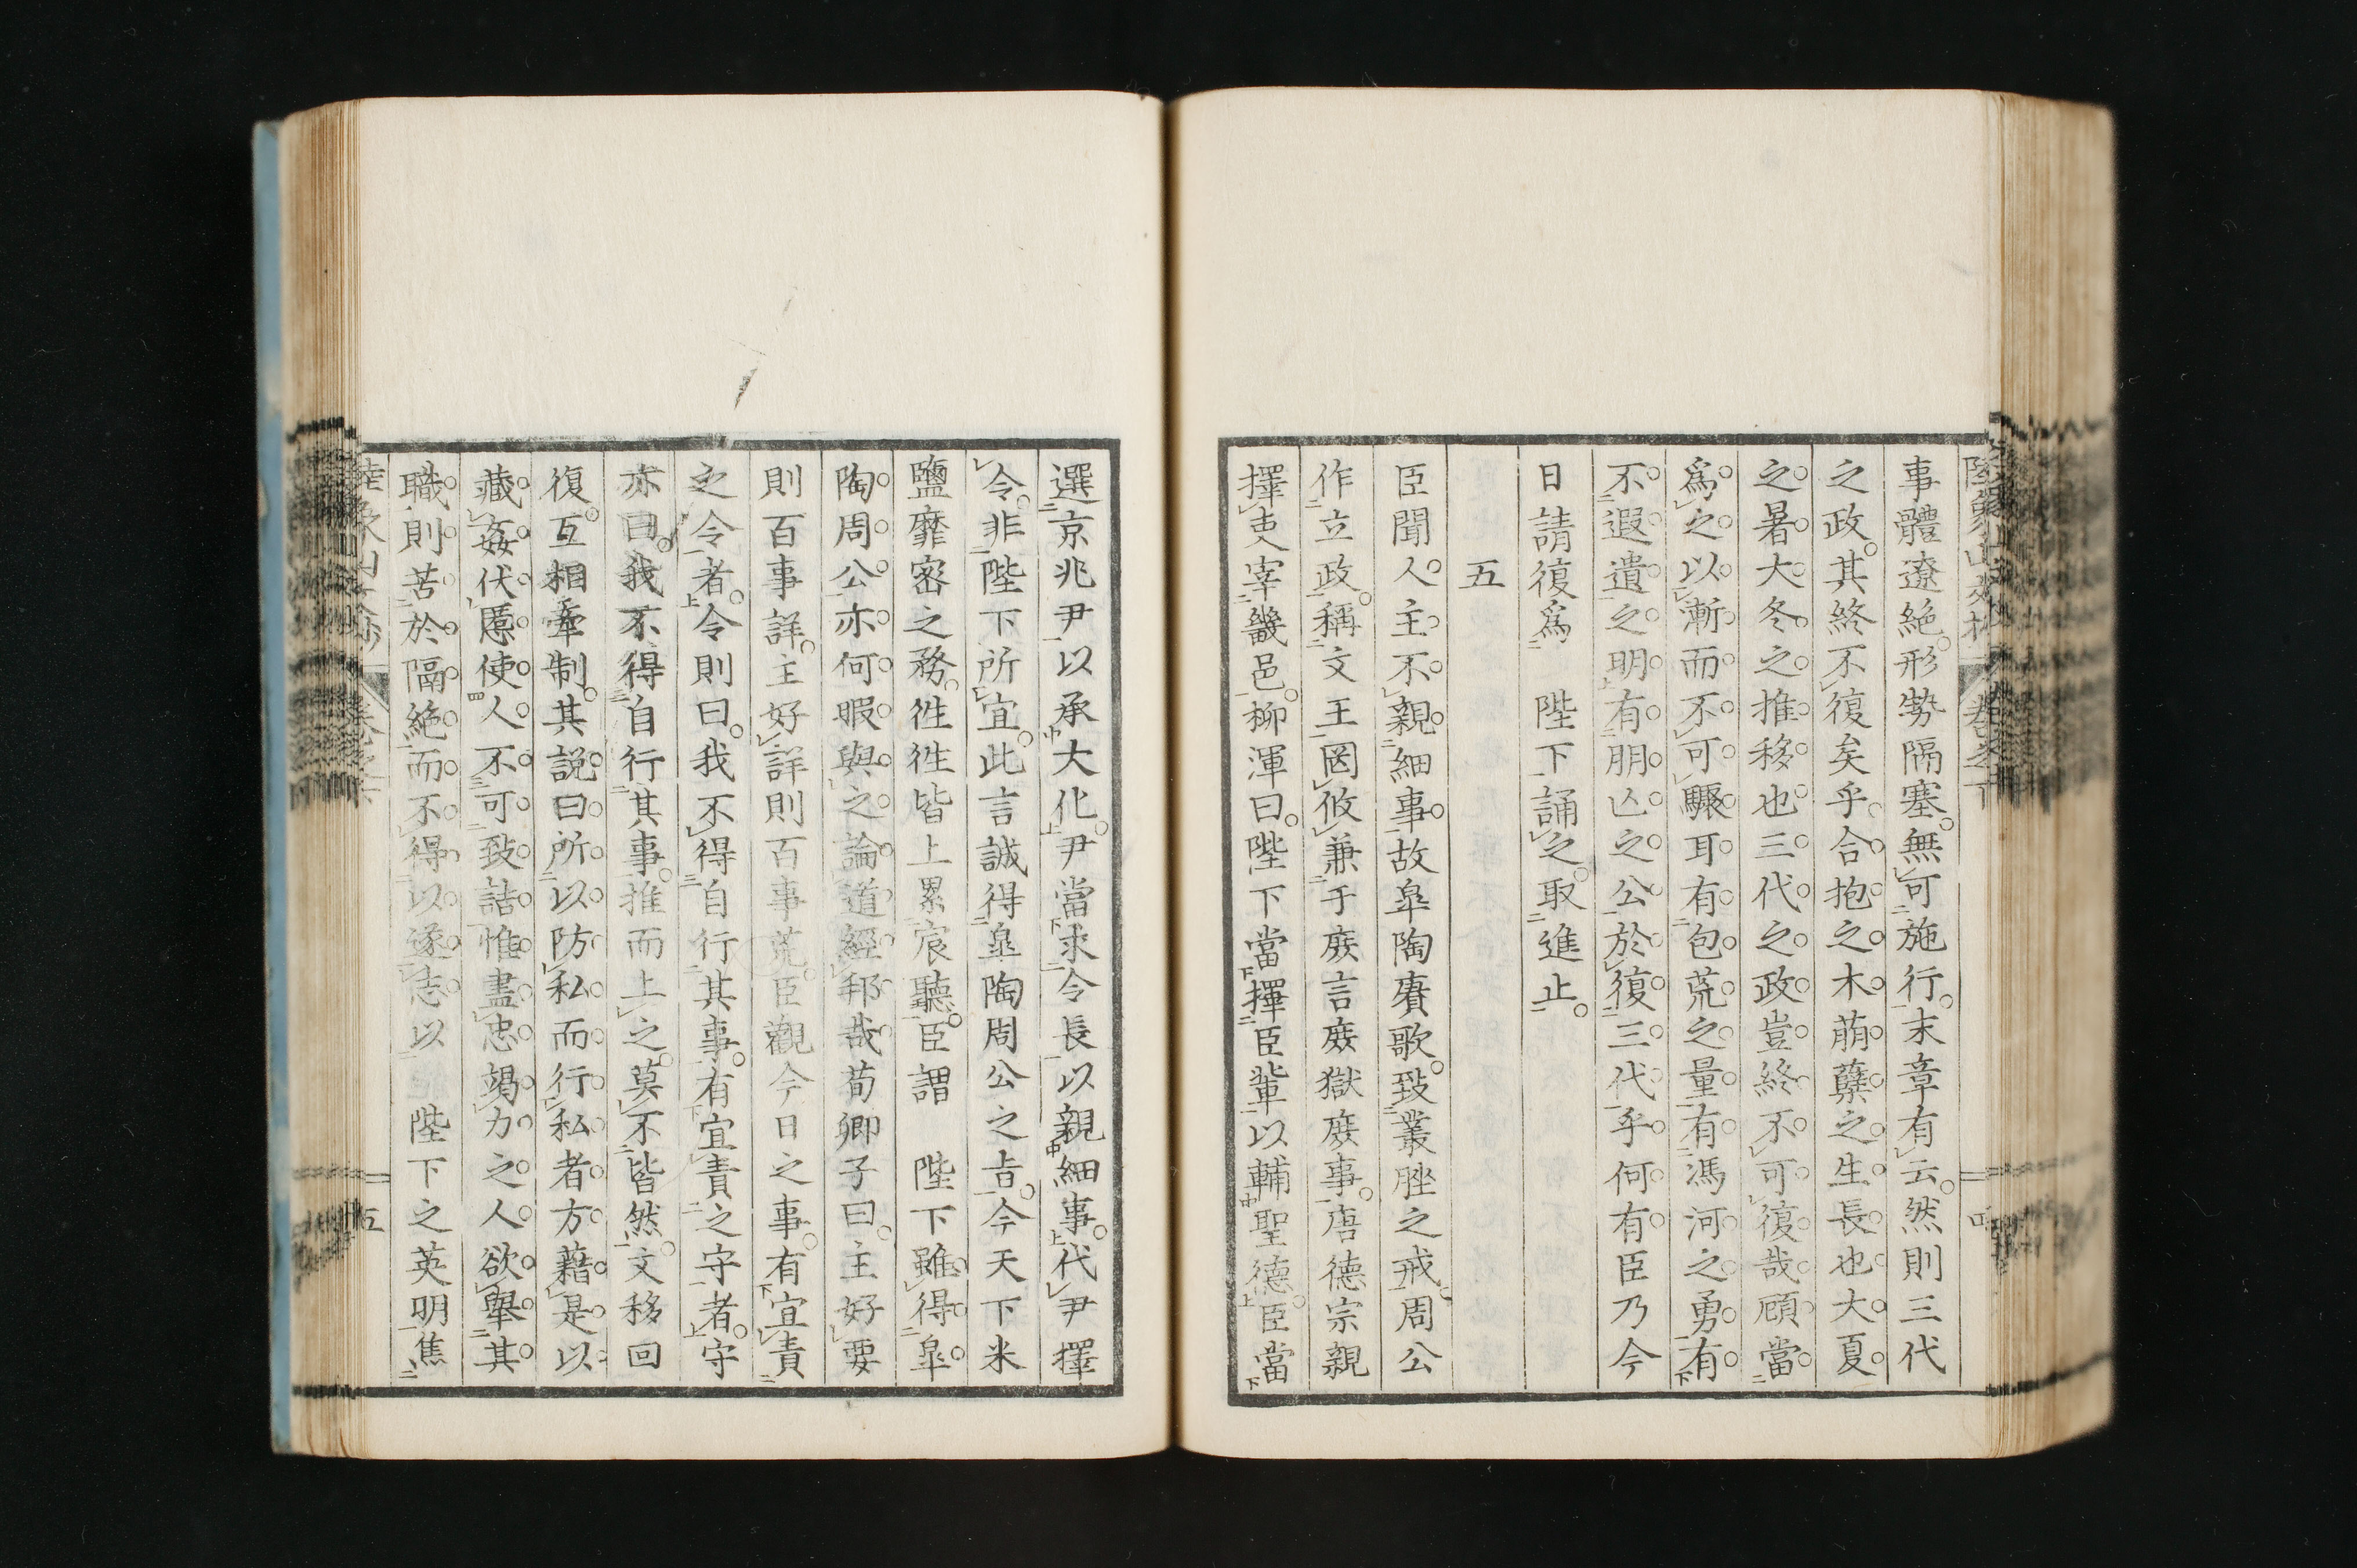 事體遼絶形勢隔塞無可施行末章有云然則三代
之政其終不復矣乎合抱之木萠蘖之生長也大夏
之暑大冬之推移也三代之政豈終不可復哉顧當
爲之以漸而不可驟耳有包荒之量有馮河之勇有
不遐遺之明有朋亾之公於復三代乎何有臣乃今
日請復爲　陛下誦之取進止
五
臣聞人主不親細事故臯陶賡歌致叢脞之戒周公
作立政稱文王罔攸兼于庶言庶獄庶事唐德宗親
擇吏宰畿邑柳渾曰陛下當擇臣輩以輔聖德臣當
選京兆尹以承大化尹當求令長以親細事代尹擇
令非陛下所宜此言誠得臯陶周公之旨今天下米
鹽靡密之務徃徃皆上累宸聽臣謂　陛下雖得臯
陶周公亦何暇與之論道經邦哉荀卿子曰主好要
則百事詳主好詳則百事荒臣觀今日之事有宜責
之令者令則曰我不得自行其事有宜責之守者守
亦曰我不得自行其事推而上之莫不皆然文移回
復互相牽制其説曰所以防私而行私者方藉是以
藏姦伏慝使人不可致詰惟盡忠竭力之人欲舉其
職則苦於隔絶而不得以遂志以　陛下之英明焦